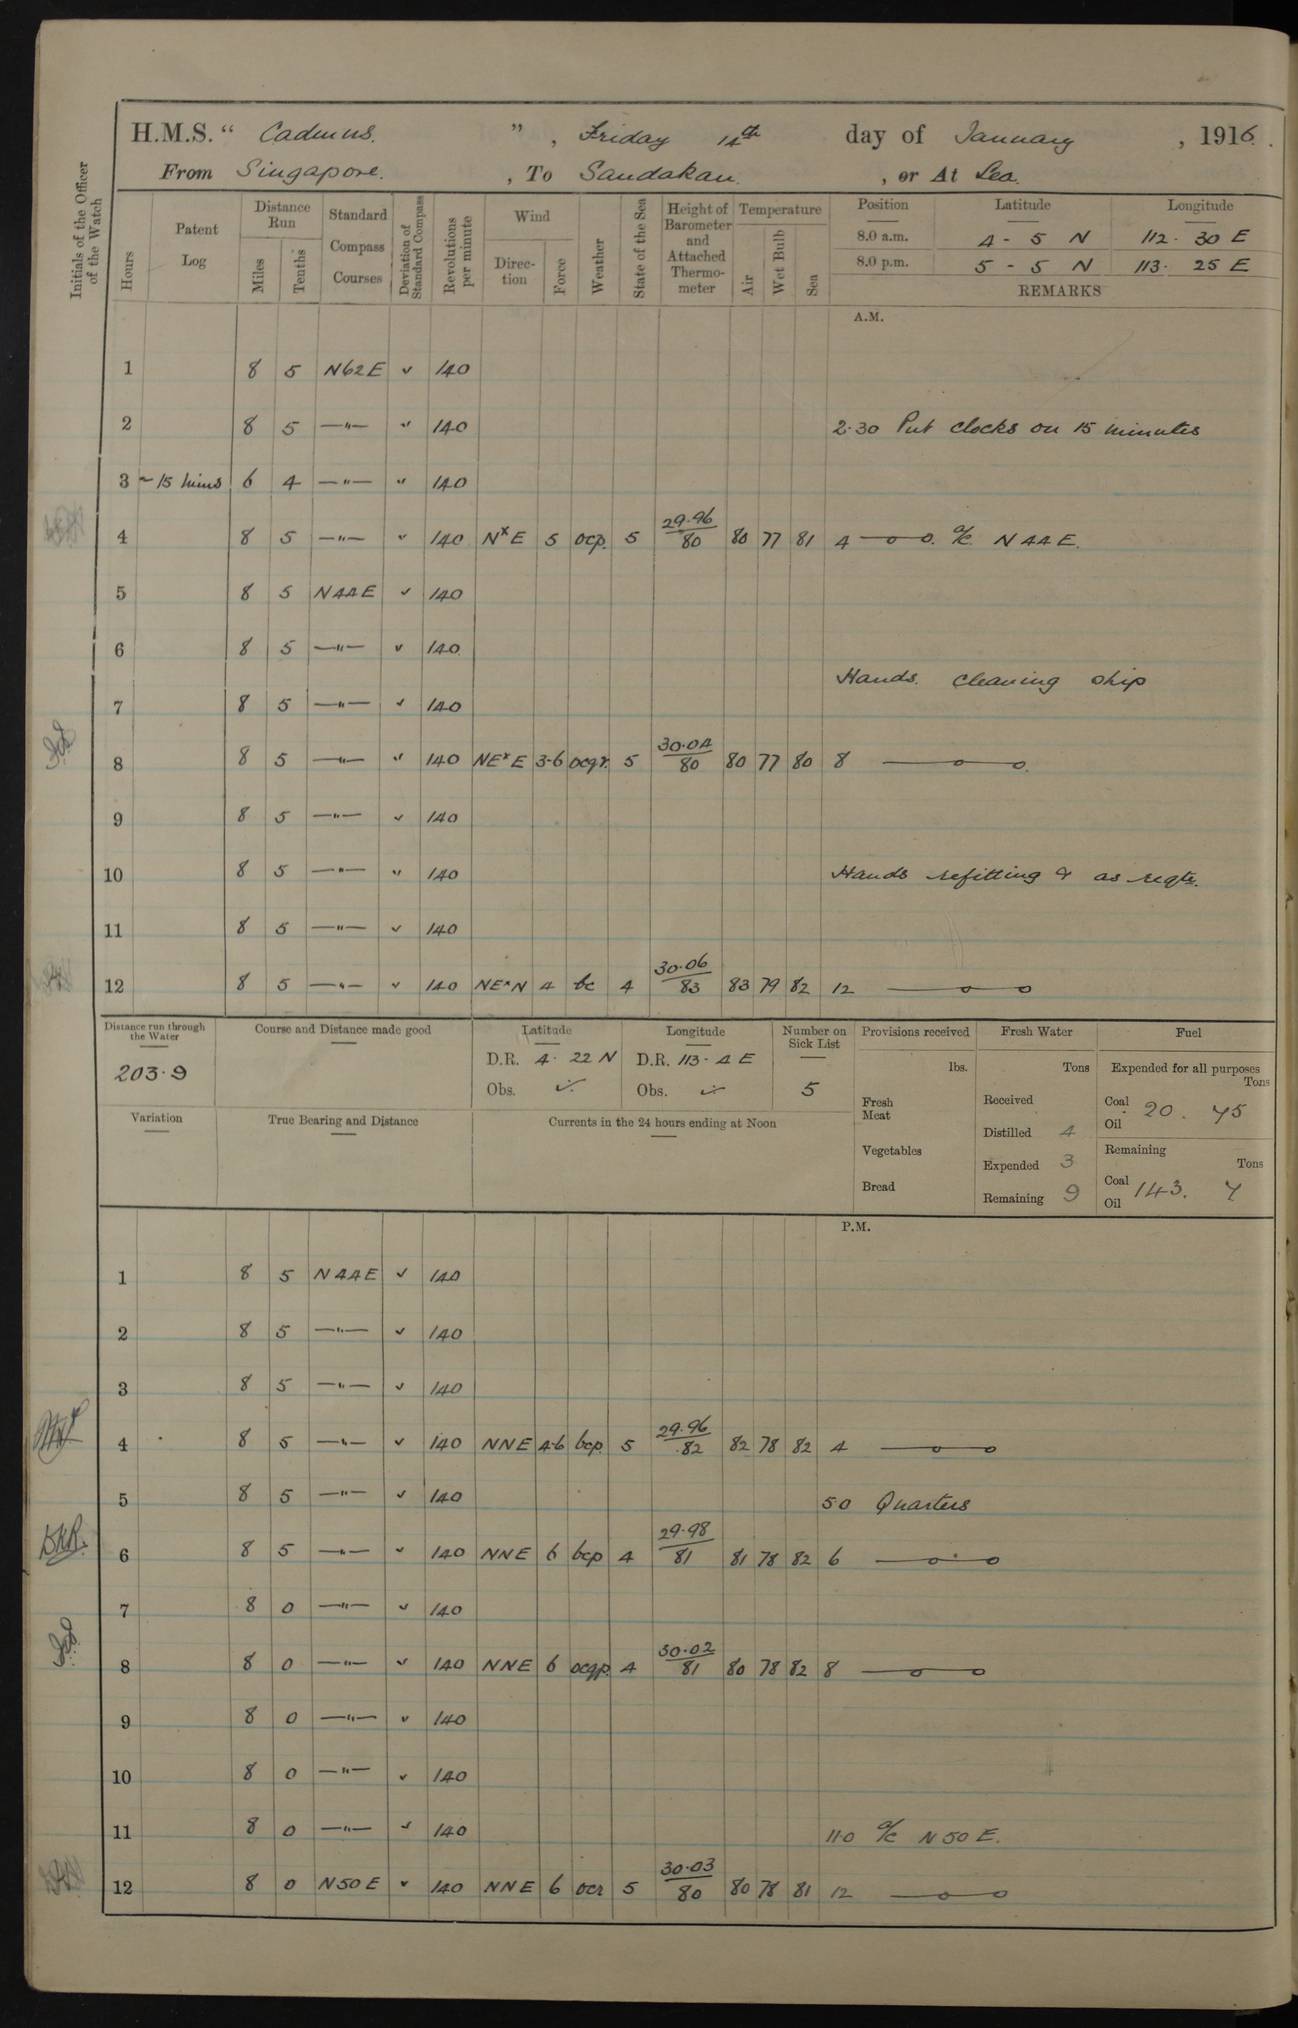 H.M.S. " Cadmus. ", Friday 14th day of January, 1916.
From Singapore. , To Sandakan. , or At Sea.
Initials of the Officer of the Watch
Hours
Patent Log
Distance Run
Miles
Tenths
Standard Compass Courses
Deviation of Standard Compass
Revolutions per minute
Wind
Direction
Force
Weather
State of the Sea
Height of Barometer and Attached Thermometer
Temperature
Air
Wet Bulb
Sea
Position Latitude Longitude
8.0 a.m. 4 - 5 N 112 · 30 E
8.0 p.m. 5 - 5 N 113 · 25 E
REMARKS
A.M.
1 8 5 N62E ✓ 140
2 8 5 —"— " 140 2·30 Put clocks on 15 minutes
3 ~15 mins 6 4 —"— " 140
4 8 5 —"— " 140 NxE 5 ocp. 5 29·96/80 80 77 81 4 —o—o. a/c N44E.
5 8 5 N44E ✓ 140
6 8 5 —"— ✓ 140
Hands. cleaning ship
7 8 5 —"— ✓ 140
8 8 5 —"— " 140 NExE 3-6 ocqr. 5 30·04/80 80 77 80 8 —o—o.
9 8 5 —"— ✓ 140
10 8 5 —"— " 140 Hands refitting & as reqte.
11 8 5 —"— ✓ 140
12 8 5 —"— ✓ 140 NExN 4 bc 4 30·06/83 83 79 82 12 —o—o
Distance run through the Water
203·9
Course and Distance made good
Latitude
D.R. 4 · 22 N
Obs. ✓
Longitude
D.R. 113 · 4 E
Obs. ✓
Number on Sick List
5
Provisions received
lbs.
Fresh Meat
Vegetables
Bread
Fresh Water
Tons
Received
Distilled 4
Expended 3
Remaining 9
Fuel
Expended for all purposes
Tons
Coal 20. 75
Oil
Remaining
Tons
Coal 143. 7
Oil
Variation
True Bearing and Distance
Currents in the 24 hours ending at Noon
P.M.
1 8 5 N44E ✓ 140
2 8 5 —"— ✓ 140
3 8 5 —"— ✓ 140
4 8 5 —"— ✓ 140 NNE 4-6 bcp. 5 29·96/82 82 78 82 4 —o—o
5 8 5 —"— ✓ 140 5 0 Quarters
BKR.
6 8 5 —"— ✓ 140 NNE 6 bcp 4 29·98/81 81 78 82 6 —o—o
7 8 0 —"— ✓ 140
8 8 0 —"— ✓ 140 NNE 6 ocqp. 4 30·02/81 80 78 82 8 —o—o
9 8 0 —"— ✓ 140
10 8 0 —"— ✓ 140
11 8 0 —"— ✓ 140 11·0 a/c N50E.
12 8 0 N50E ✓ 140 NNE 6 ocr 5 30·03/80 80 78 81 12 —o—o